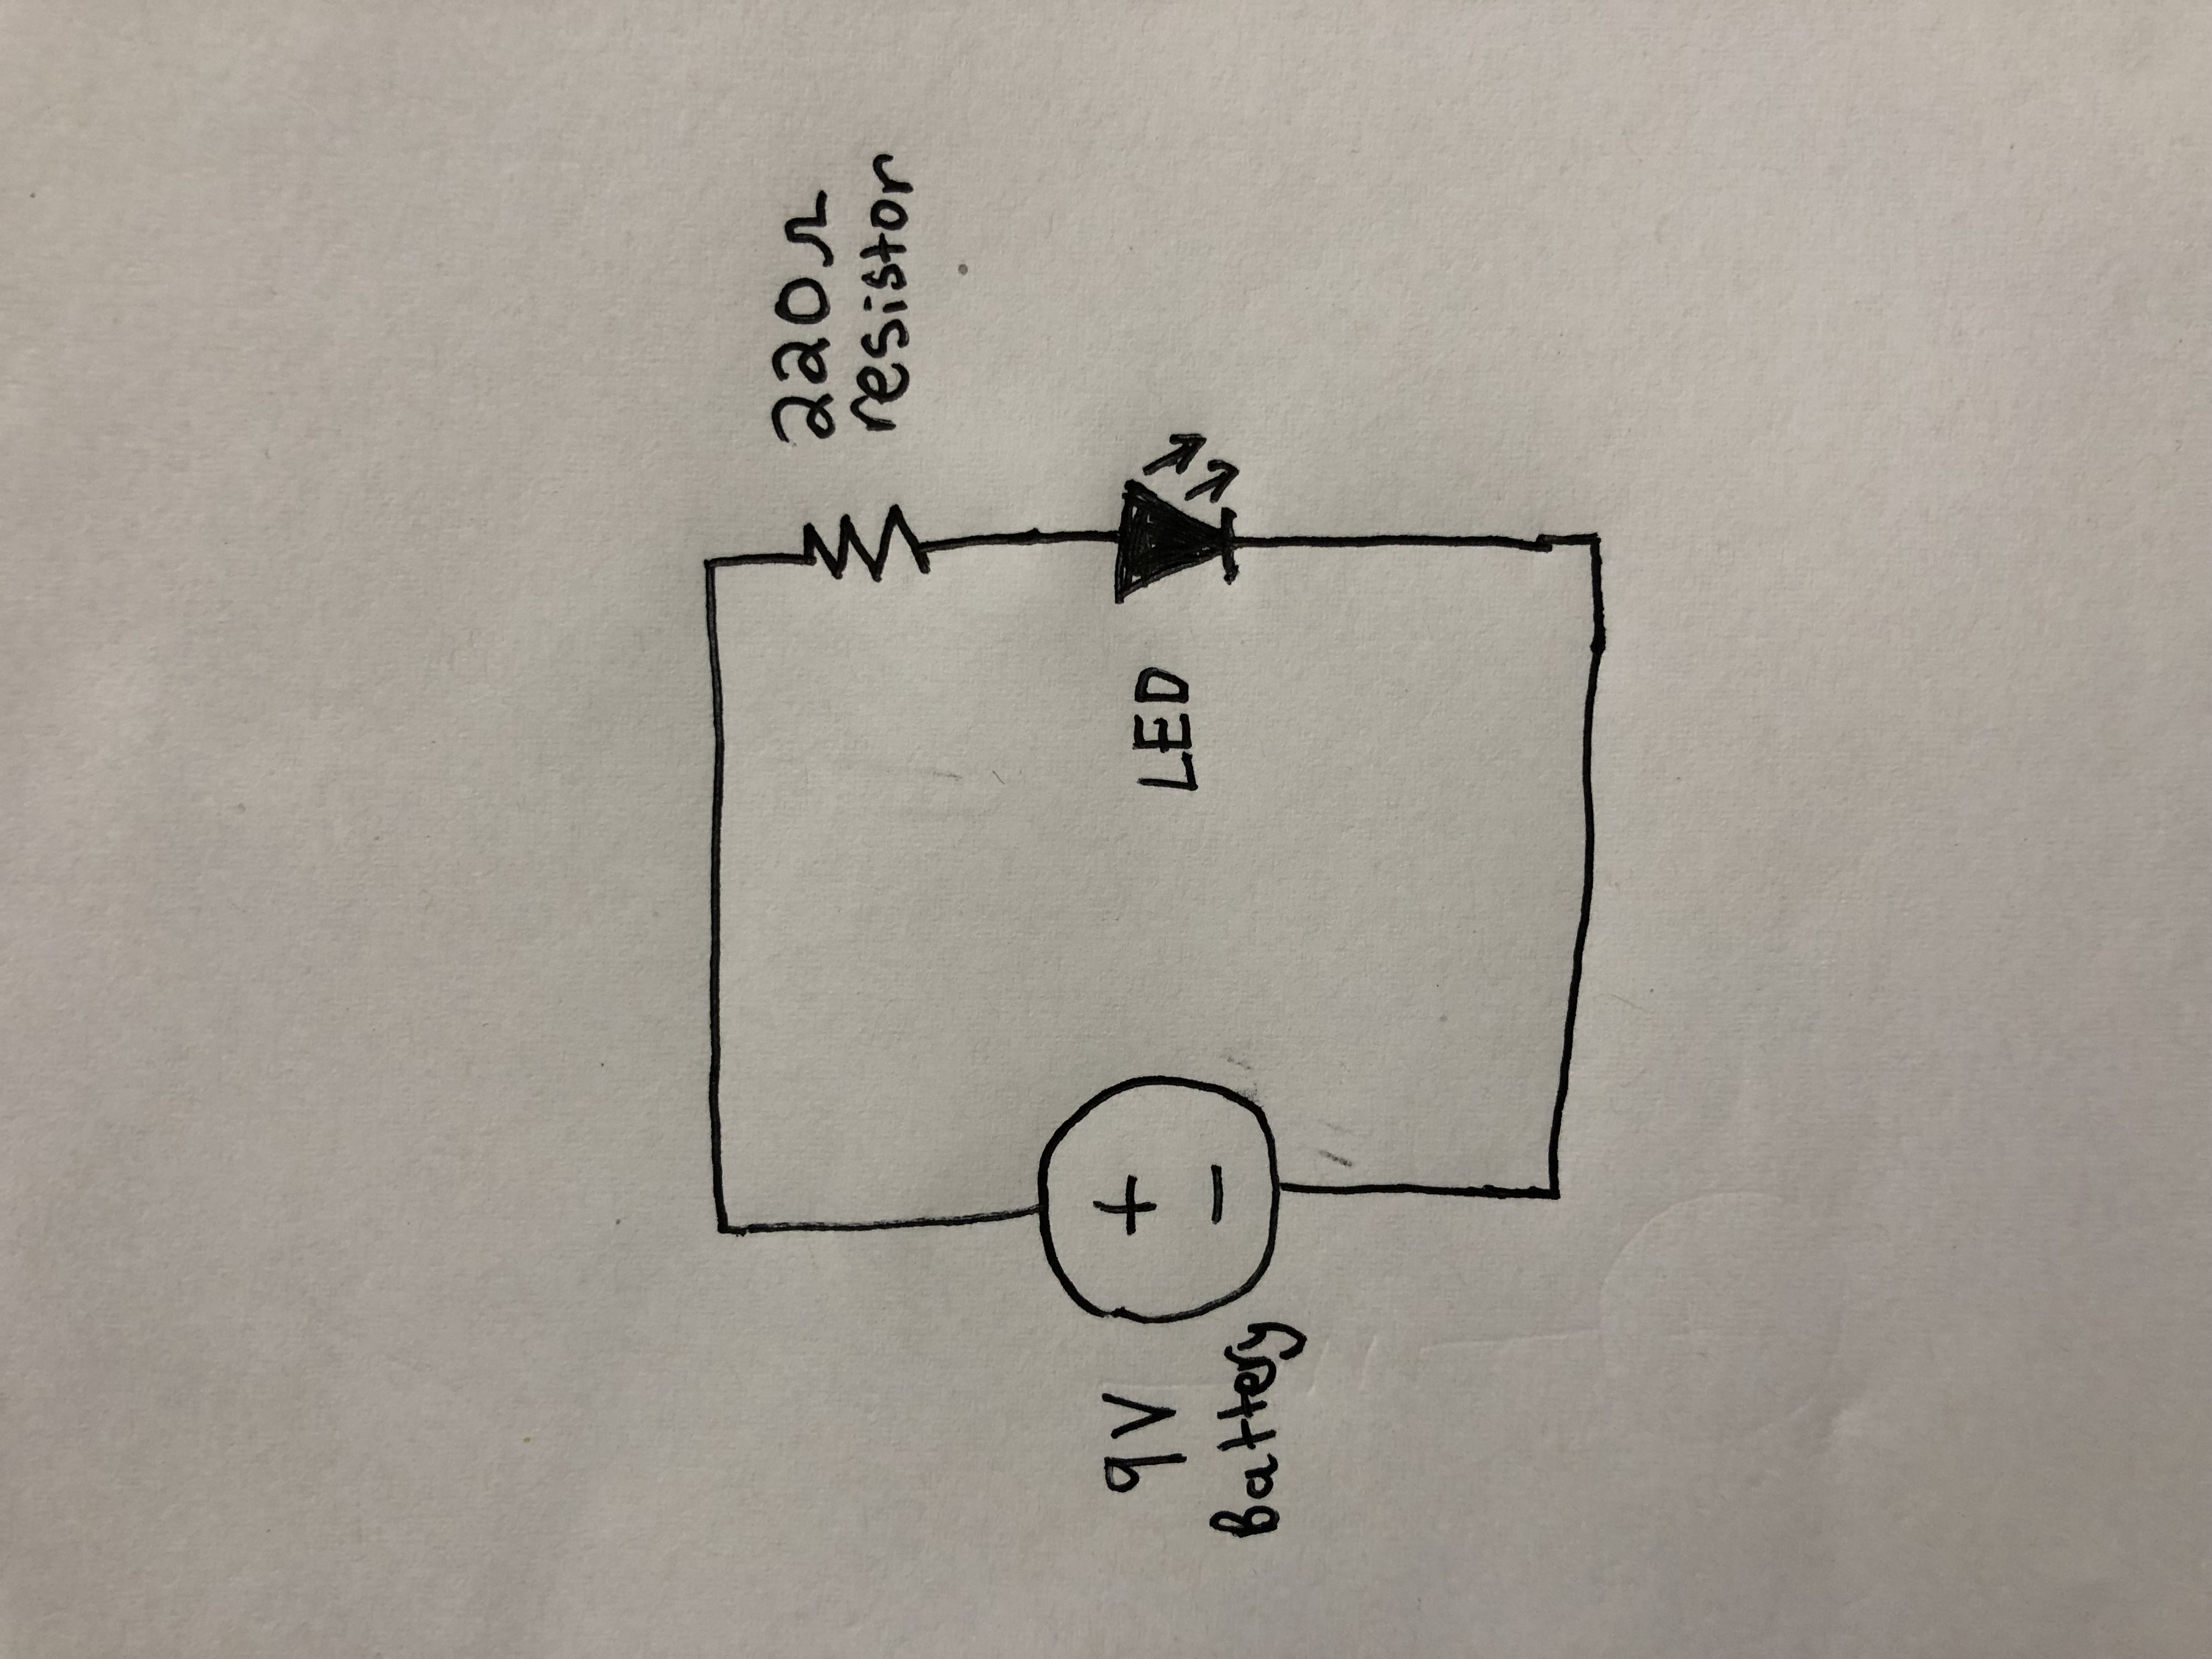 220Ω
resistor
9V
Battery
+
−
LED